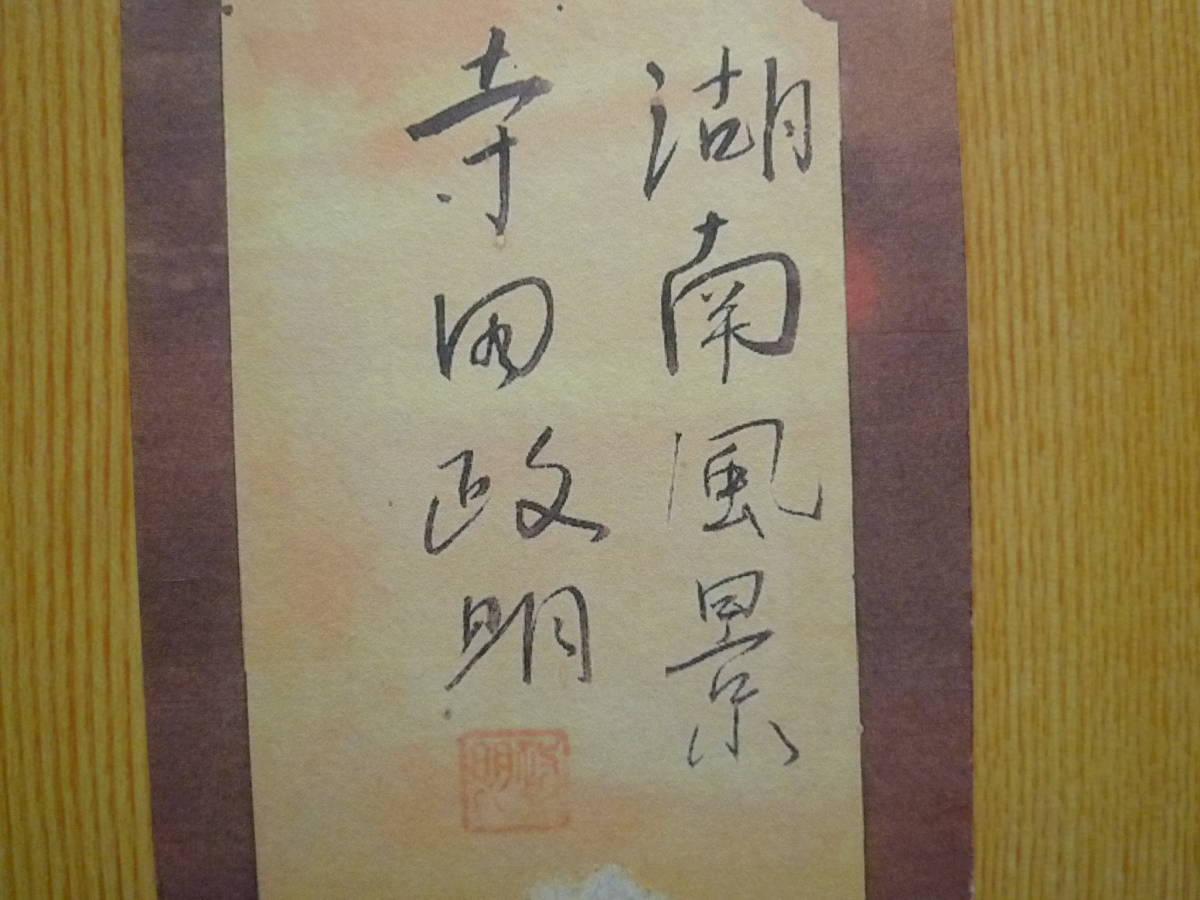 湖南風景
寺田政明
政明